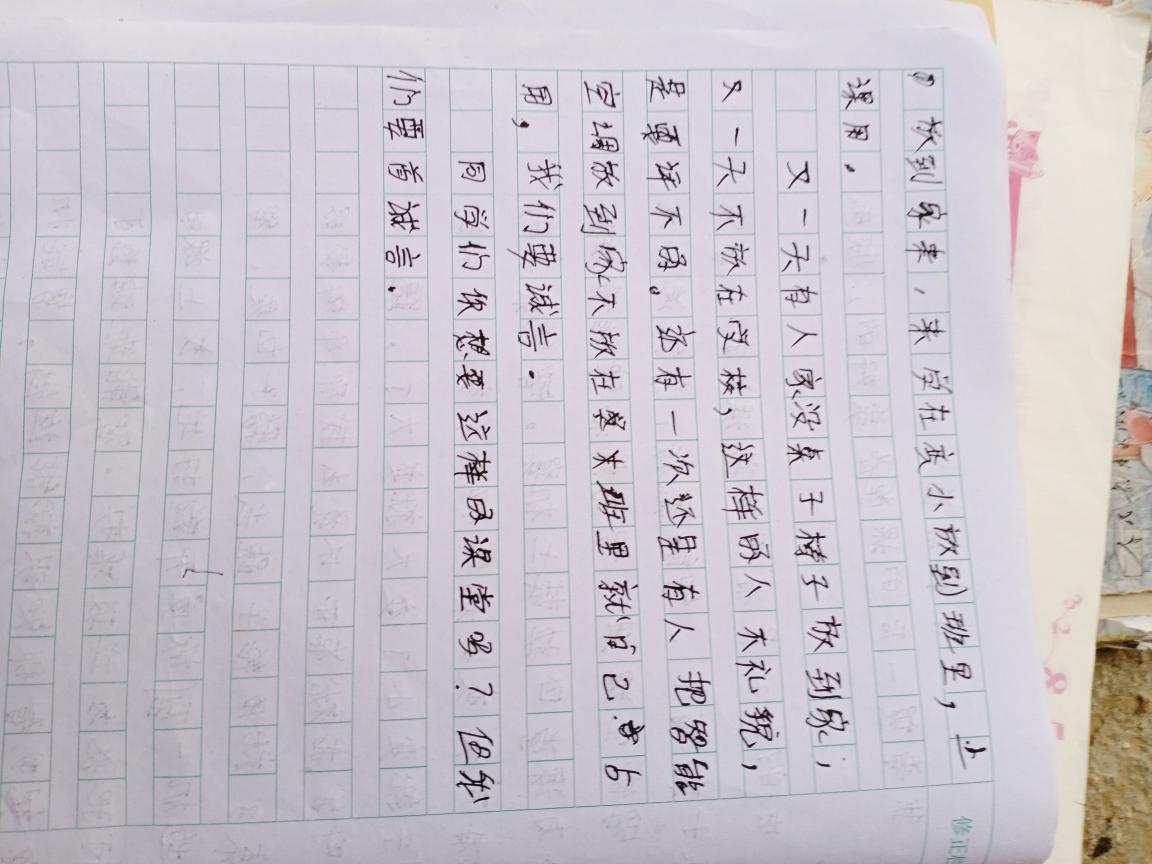 放到家来，来完在变小放到班里，上
课用。
又一天有人家没桌子椅子放到家，
又一天不放在学校，这样的人不礼貌，
是要坪不因。还有一次还是有人把智能
空调放到家不放在教大班里就自己占
用，我们要诚言。
同学们你想要这样的课堂吗？但我
们要首诚言。
修正
328